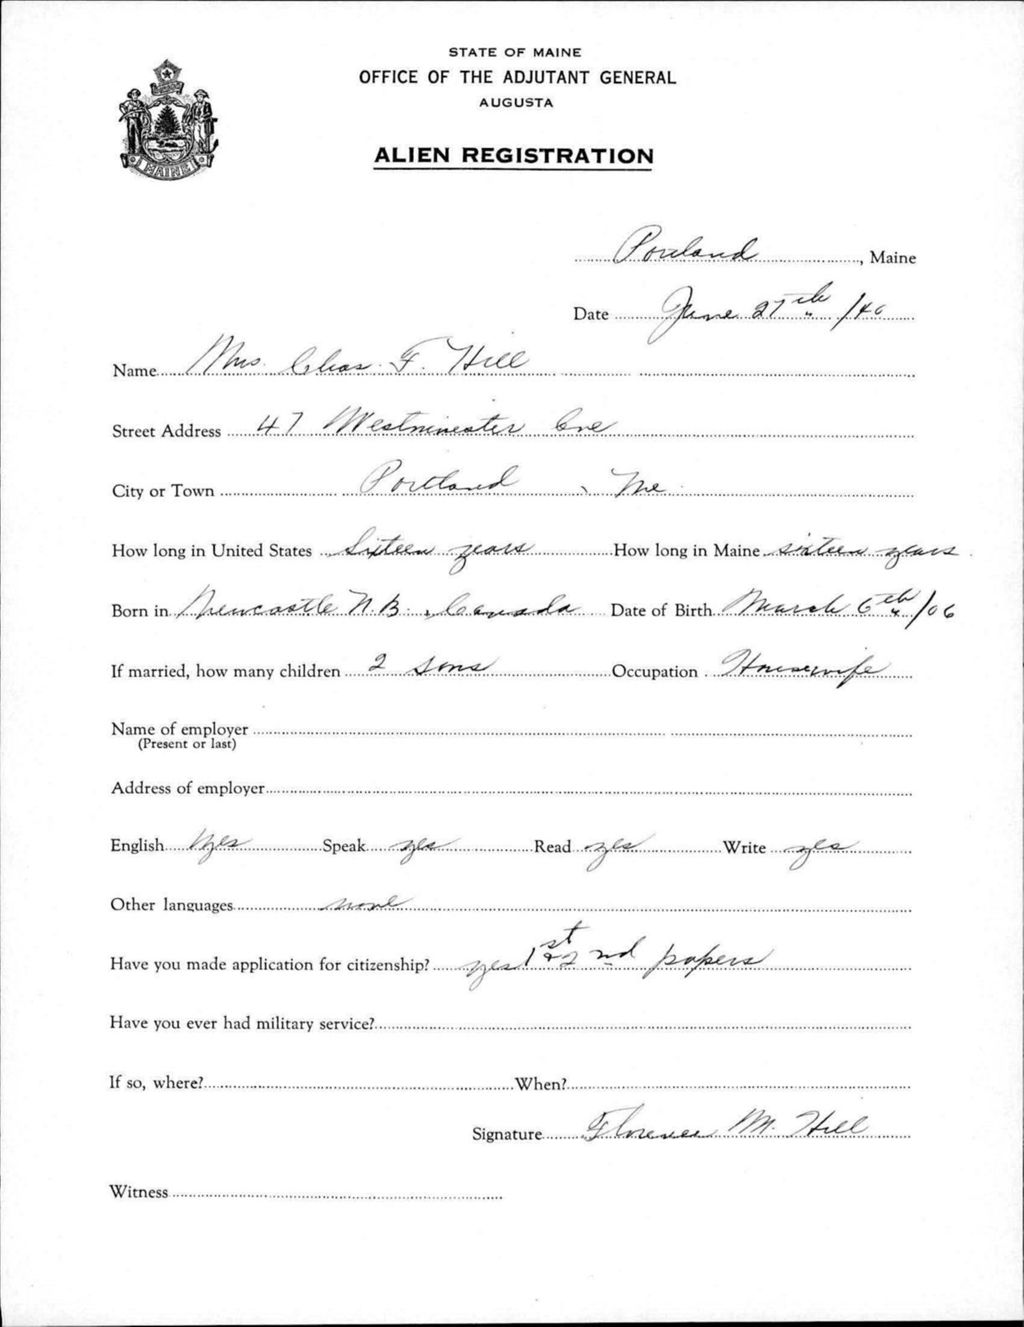 STATE OF MAINE
OFFICE OF THE ADJUTANT GENERAL
AUGUSTA
MAINE
ALIEN REGISTRATION
Portland, Maine
Date June 27th /40
Name Mrs. Chas. F. Hill
Street Address 47 Westminester Ave
City or Town Portland, Me.
How long in United States Sixteen years How long in Maine sixteen years
Born in Newcastle N.B., Canada Date of Birth March 6th /06
If married, how many children 2 sons Occupation Housewife
Name of employer
(Present or last)
Address of employer
English Yes Speak yes Read yes Write yes
Other languages none
Have you made application for citizenship? yes 1st & 2nd papers
Have you ever had military service?
If so, where? When?
Signature Florence M. Hill
Witness